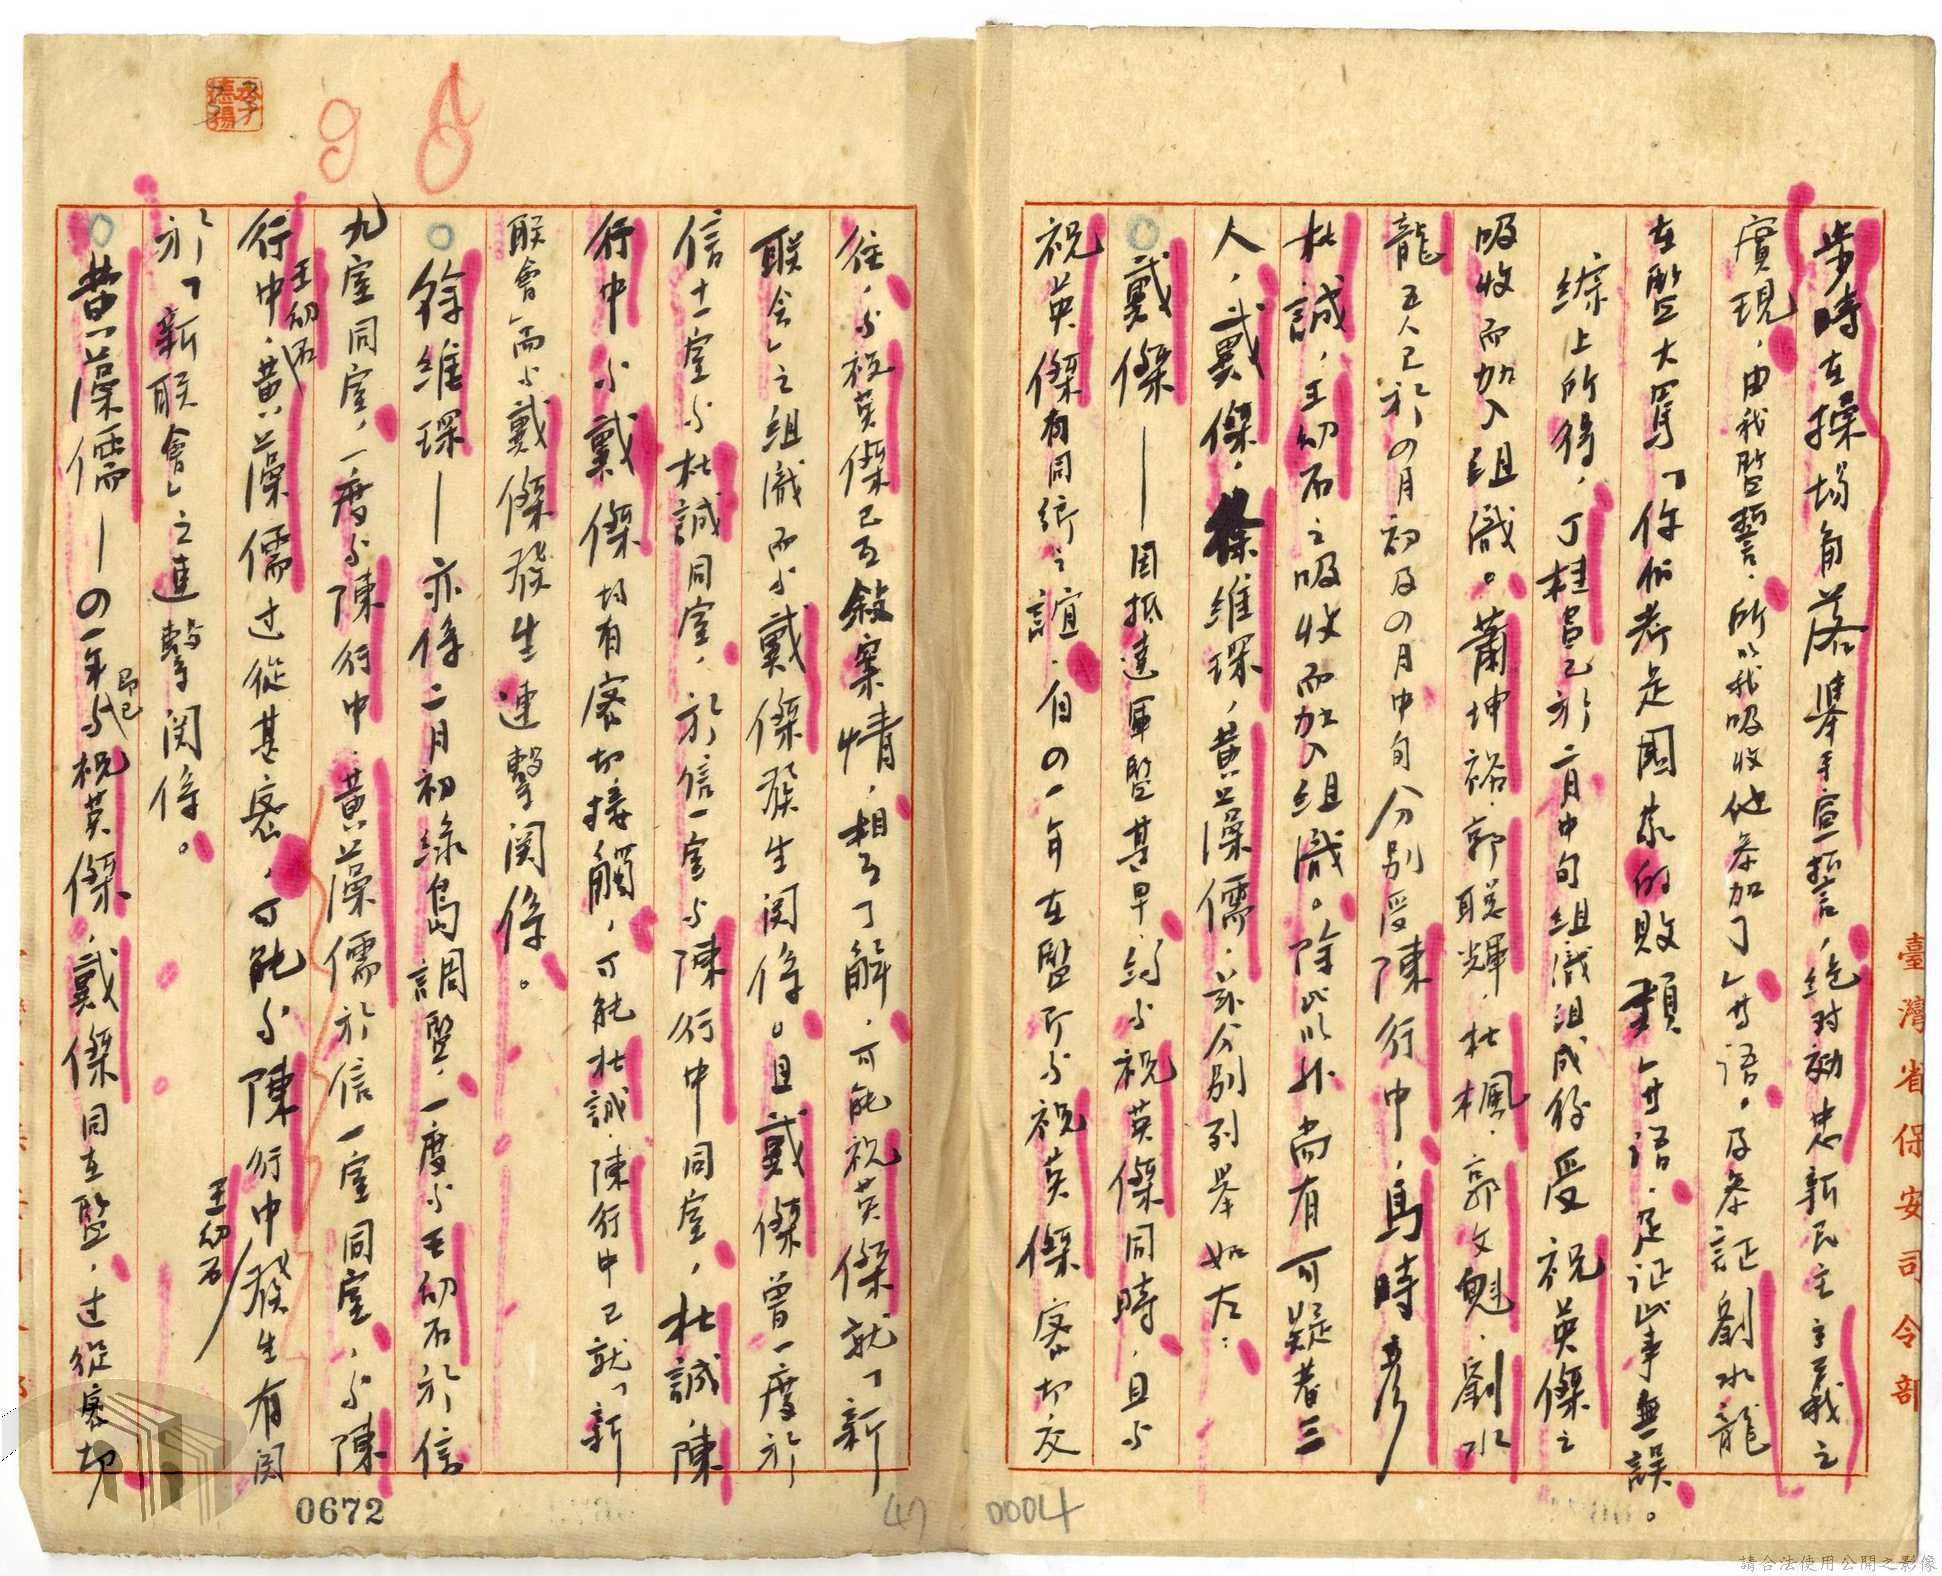 步時在操場角落舉手宣誓，絕对効忠新民主主義之
實現，由我監誓，所以我吸收他参加了」等語。及参証劉水龍
在監大罵「你們考是國家的敗類」等語，足証此事無誤。
綜上所得，丁桂昌已於二月中旬組識組成後受祝英傑之
吸收而加入組識。蕭坤裕、郭聰輝、杜楓、郭文魁、劉水
龍五人已於の月初及の月中旬分別受陳行中、馬時彥、
杜誠、王幼石之吸收而加入組識。除此以外尚有可疑者三
人，戴傑、徐維琛、黃藻儒，茲分別列举如左：
戴傑——因抵達軍監甚早，約与祝英傑同時，且与
祝英傑有同鄉之誼，自の一年在監所与祝英傑密切交
往，与祝英傑已互敘案情，相互了解，可能祝英傑就「新
联会」之組識而与戴傑發生関係。且戴傑曾一度於
信十一室与杜誠同室，於信一室与陳行中同室，杜誠、陳
行中与戴傑均有密切接觸，可能杜誠、陳行中已就「新
联會」而与戴傑發生連繫関係。
徐維琛—亦係二月初綠島調監，一度与王幼石於信
九室同室，一度与陳行中、黃藻儒於信一室同室，与陳
行中、王幼石、黃藻儒过從甚密，可能与陳行中王幼石發生有関
於「新联會」之連繫関係。
黃藻儒—の一年即已与祝英傑、戴傑同在監，过從密切
臺灣省保安司令部
98
0672
47
0004
請合法使用公開之影像